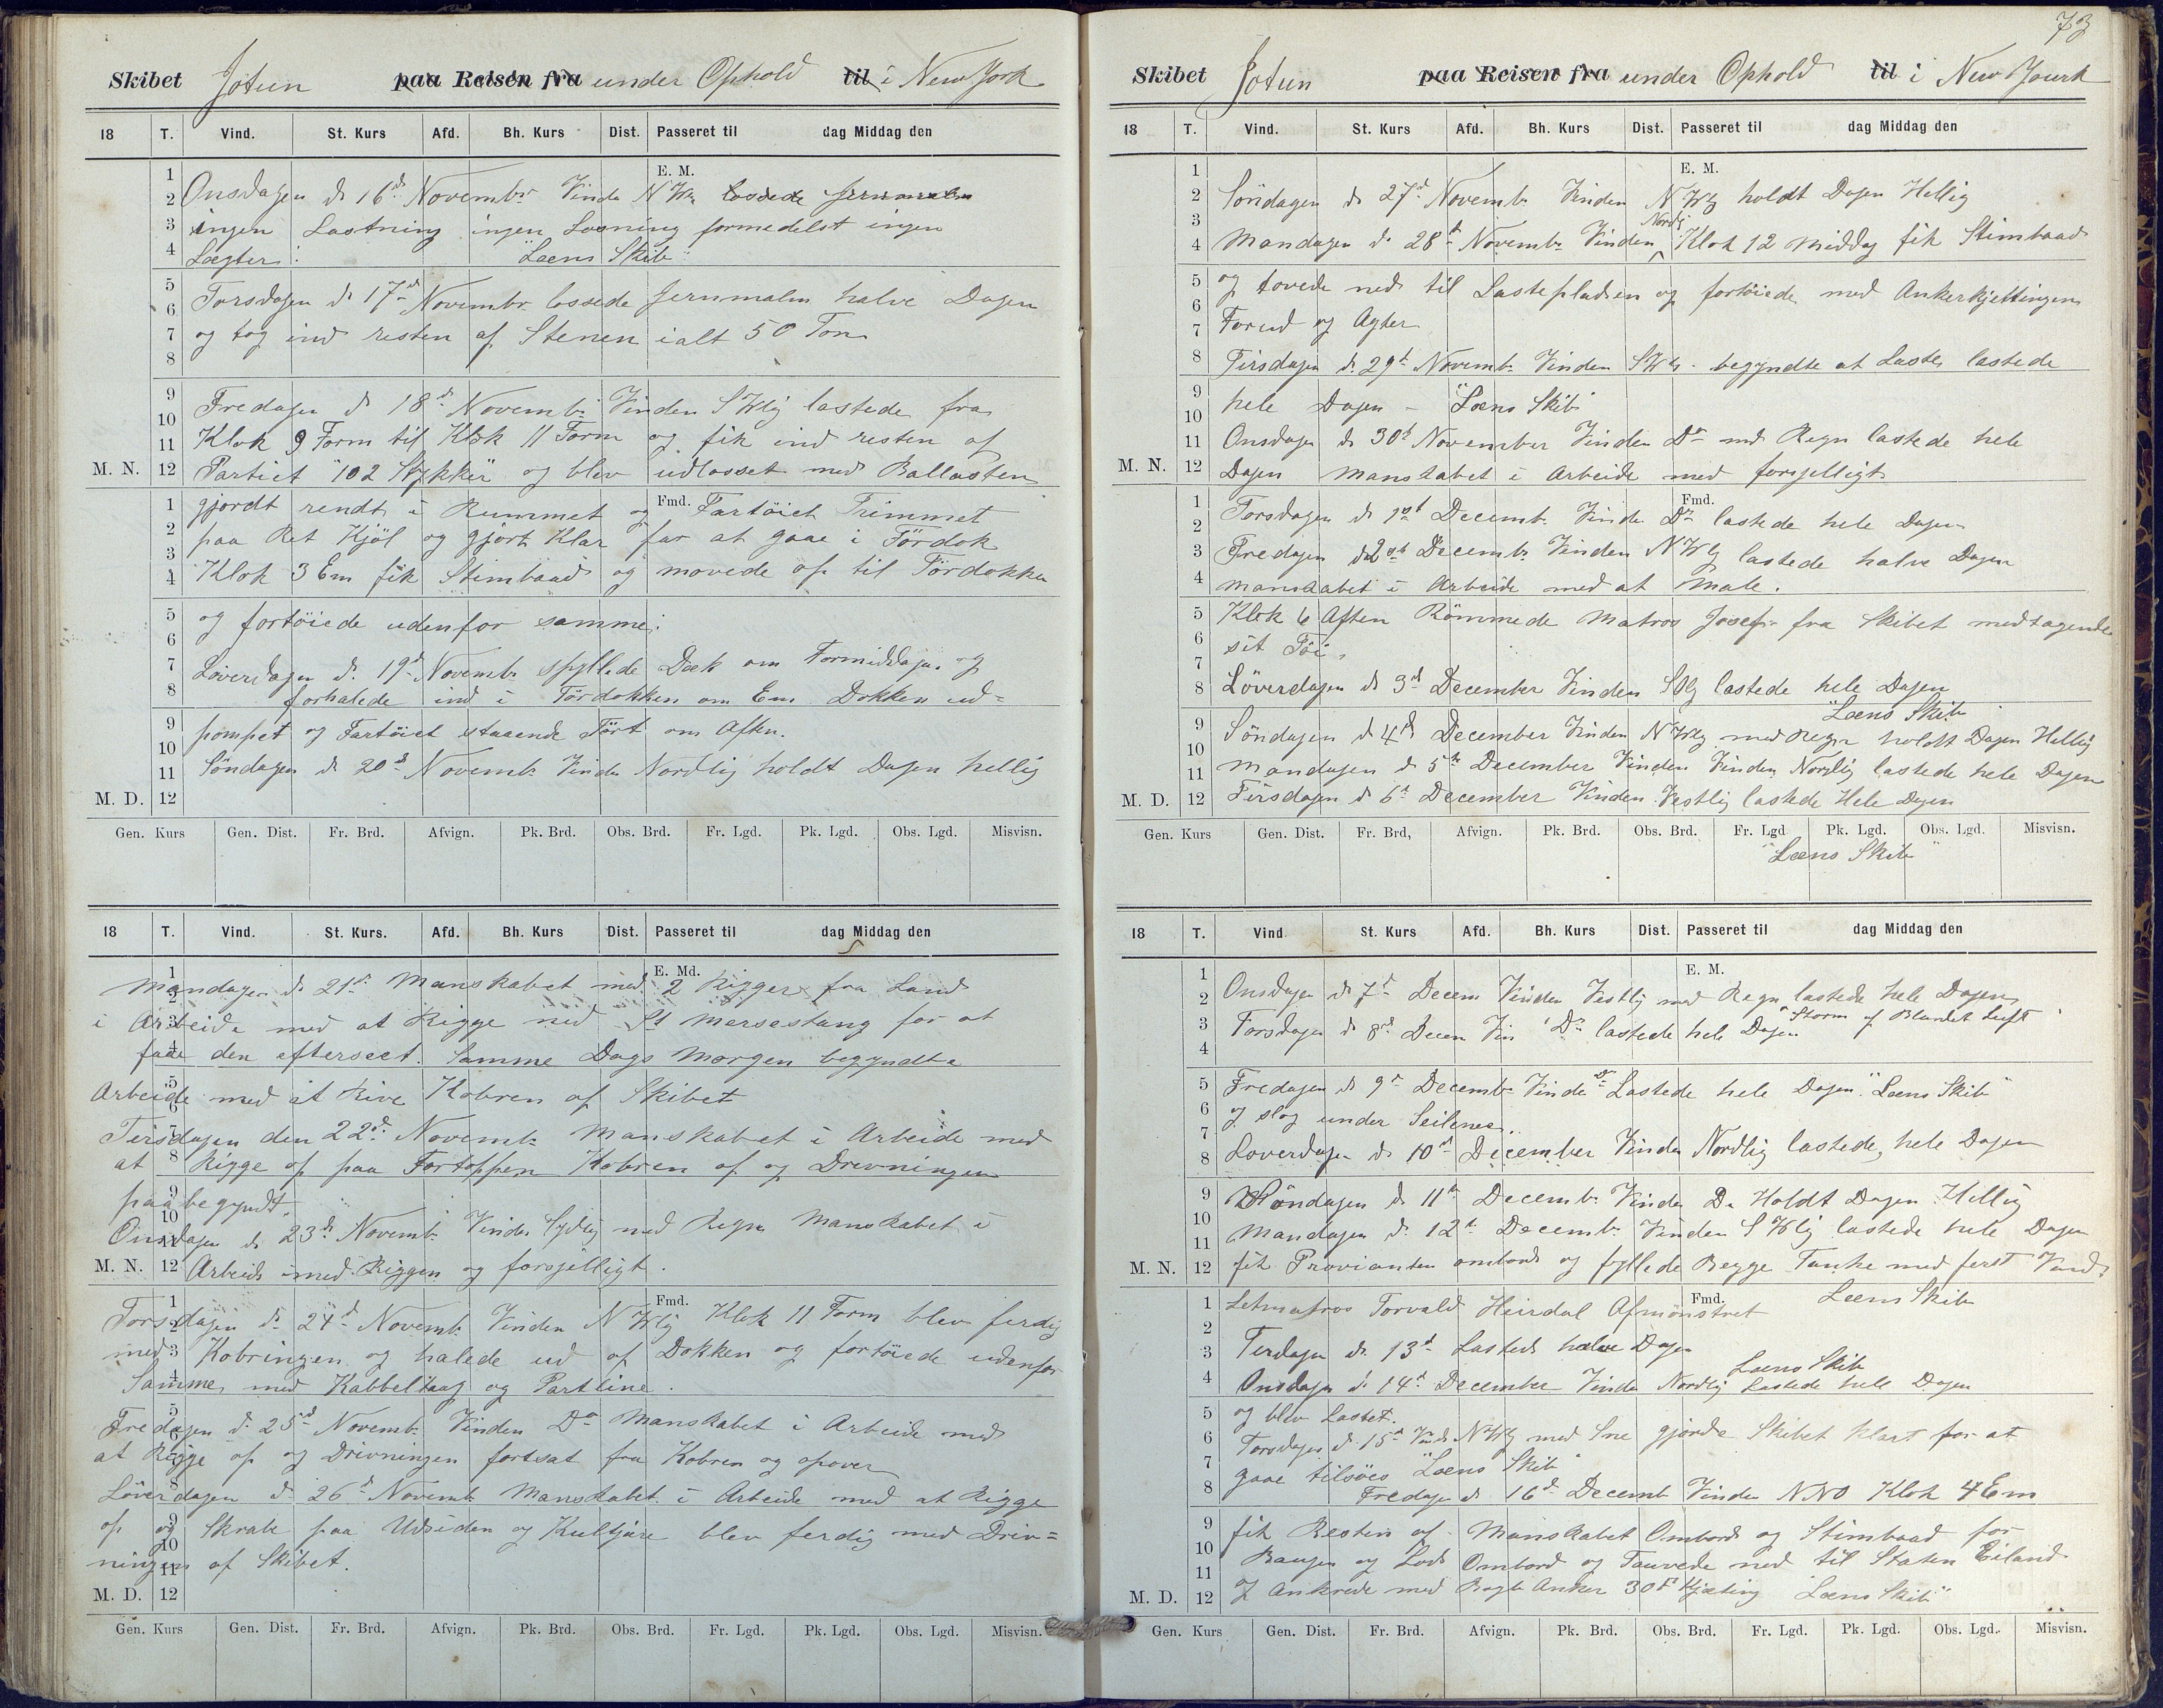 Skibet Jotun paa Reisen fra under Ophold til i New York
18 T. Vind. St. Kurs Afd. Bh. Kurs Dist. Passeret til dag Middag den
E. M.
Onsdagen d. 16d Novembr Vinden N Wn lossede Jernmalm
ingen Lastning ingen Losning formedelst ingen
Lægter: "Læns Skib"
Torsdagen d. 17d Novembr lossede Jernmalm halve Dagen
og tog ind resten af Stenen ialt 50 Ton
Fredagen d 18d Novembr Vinden S Wlig lastede fra
Klok 9 Form til Klok 11 Form og fik ind resten af
M. N. Partiet "102 Stykker" og blev udlosset med Ballasten
Fmd.
gjordt rendt i Rummet og Fartöiet Trimmet
paa Ret Kjöl og gjort Klar for at gaae i Tördok
Klok 3 Em fik Stimbaad og movede op til Tördokken
og fortöiede udenfor samme.
Löverdagen d. 19d Novembr spyllede Dæk om Formiddagen og
forhalede ind i Tördokken om Em Dokken ud=
pompet og Fartöiet staaende Tört om Aften.
Söndagen d 20d Novembr Vinden Nordlig holdt Dagen hellig
M. D.
Gen. Kurs Gen. Dist. Fr. Brd. Afvign. Pk. Brd. Obs. Brd. Fr. Lgd. Pk. Lgd. Obs. Lgd. Misvisn.
18 T. Vind. St. Kurs. Afd. Bh. Kurs Dist. Passeret til dag Middag den
E. Md.
Mandagen d. 21d Manskabet med 2 Rigger fra Land
i Arbeide med at Rigge ned St Mersestang for at
faae den efterseet. Samme Dags Morgen begyndte
Arbeide med at Rive Kobren af Skibet
Tirsdagen den 22d Novembr Manskabet i Arbeide med
at Rigge op paa Fortoppen Kobren af og Drevningen
paabegyndt.
Onsdagen d. 23d Novembr Vinden Sydlig med Regn Manskabet i
M. N. Arbeide med Riggen og forsjelligt.
Fmd.
Torsdagen d. 24d Novembr Vinden N Wlig Klok 11 Form blev ferdig
med Kobringen og halede ud af Dokken og fortöiede udenfor
Samme, med Kabbeltaug og Partline.
Fredagen d. 25d Novembr Vinden Do Manskabet i Arbeide med
at Rigge op og Drivningen fortsat fra Kobren og opover
Löverdagen d. 26d Novembr Manskabet i Arbeide med at Rigge
op og Skrabe paa Udsiden og Kultjære blev ferdig med Driv=
ningen af Skibet.
M. D.
Gen. Kurs Gen. Dist. Fr. Brd. Afvign. Pk. Brd. Obs. Brd. Fr. Lgd. Pk. Lgd. Obs. Lgd. Misvisn.
73
Skibet Jotun paa Reisen fra under Ophold til i New Yourk
18 T. Vind. St. Kurs Afd. Bh. Kurs Dist. Passeret til dag Middag den
E. M.
Söndagen d. 27d Novembr Vinden N Wlg holdt Dagen Hellig
Mandagen d. 28d Novembr Vinden Nordl Klok 12 Middag fik Stimbaad
og tovede ned til Lastepladsen og fortöiede med Ankerkjettingen
Forud og Agter
Tirsdagen d. 29d Novembr Vinden SWlg begyndte at Laste, lastede
hele Dagen – "Læns Skib"
Onsdagen d 30d November Vinden Do med Regn lastede hele
M. N. Dagen Manskabet i Arbeide med forsjelligt
Fmd.
Torsdagen d 1st Decembr Vinden Do lastede hele Dagen
Fredagen d 2d Decembr Vinden N Wlg lastede halve Dagen
Manskabet i Arbeide med at Male.
Klok 6 Aften Römmede Matros Josef fra Skibet medtagende
sit Töi,
Löverdagen d 3d December Vinden SOlg lastede hele Dagen
"Læns Skib
Söndagen d 4d December Vinden N Wlg med Regn holdt Dagen Hellig
Mandagen d 5d December Vinden Vinden Nordlig lastede hele Dagen
M. D. Tirsdagen d 6d December Vinden Vestlig lastede Hele Dagen
Gen. Kurs Gen. Dist. Fr. Brd, Afvign. Pk. Brd. Obs. Brd. Fr. Lgd Pk. Lgd. Obs. Lgd. Misvisn.
"Læns Skib"
18 T. Vind St. Kurs Afd. Bh. Kurs Dist. Passeret til dag Middag den
E. M.
Onsdagen d 7d Decem Vinden Vestlig med Regn lastede hele Dagen
Torsdagen d 8d Decem Vin Do lastede hele Dagen "Storm af Blandet Luft"
Fredagen d 9d Decembr Vinden Do Lastede hele Dagen. "Læns Skib"
og slog under Seilenes.
Loverdagen d 10d December Vinden Nordlig lastede, hele Dagen
Söndagen d 11d Decembr Vinden Do Holdt Dagen Hellig
Mandagen d. 12d Decembr Vinden S Wlig lastede hele Dagen
M. N. fik Provianten ombord og fyllede Begge Tanke med ferst Vand
Fmd. Læns Skib
Letmatros Torvald Heirdal Afmönstret
Tirdagen d. 13d Lastede halve Dagen
Læns Skib
Onsdagen d. 14d December Vinden Nordlig Lastede hele Dagen
og blev Lastet.
Torsdagen d. 15d Vinden NWlg med Sne gjorde Skibet klart for at
gaae tilsöes "Læns Skib"
Fredagen d 16d Decemb Vinden NNO Klok 4 Em
fik Resten af Manskabet Ombord og Stimbaad for
Baugen og Lods Ombord og Tauvede ned til Staten Eiland
M. D. og Ankrede med Bagb Anker 30 F Kjæting "Læns Skib"
Gen. Kurs Gen. Dist. Fr. Brd. Afvign. Pk. Brd. Obs. Brd. Fr. Lgd. Pk. Lgd. Obs. Lgd. Misvisn.